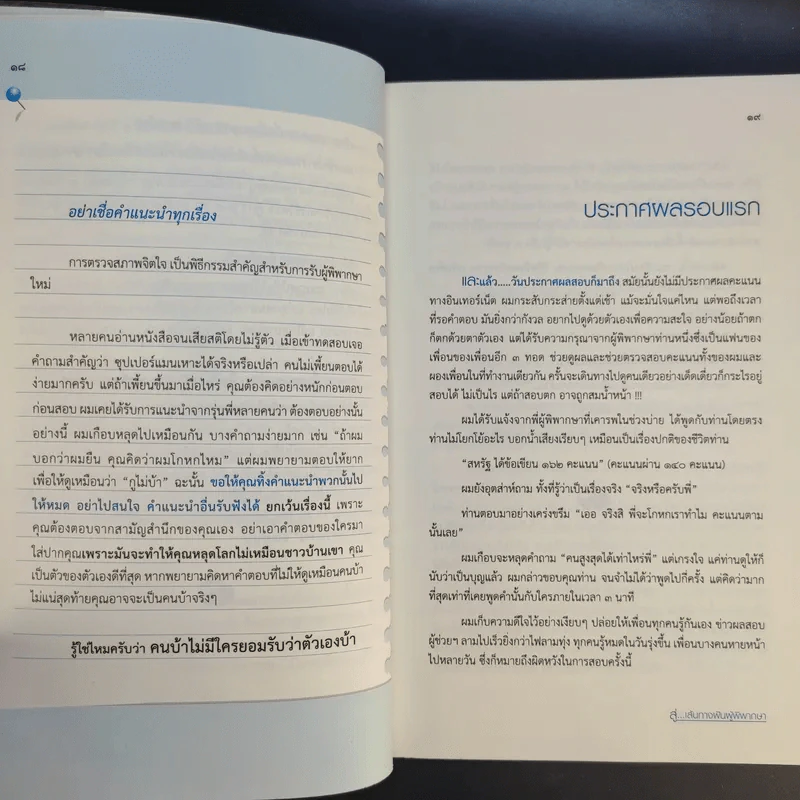 ๑๘
อย่าเชื่อคำแนะนำทุกเรื่อง
การตรวจสภาพจิตใจ เป็นพิธีกรรมสำคัญสำหรับการรับผู้พิพากษา
ใหม่
หลายคนอ่านหนังสือจนเสียสติโดยไม่รู้ตัว เมื่อเข้าทดสอบเจอ
คำถามสำคัญว่า ซุปเปอร์แมนเหาะได้จริงหรือเปล่า คนไม่เพี้ยนตอบได้
ง่ายมากครับ แต่ถ้าเพี้ยนขึ้นมาเมื่อไหร่ คุณต้องคิดอย่างหนักก่อนตอบ
ก่อนสอบ ผมเคยได้รับการแนะนำจากรุ่นพี่หลายคนว่า ต้องตอบอย่างนั้น
อย่างนี้ ผมเกือบหลุดไปเหมือนกัน บางคำถามง่ายมาก เช่น “ถ้าผม
บอกว่าผมยืน คุณคิดว่าผมโกหกไหม” แต่ผมพยายามตอบให้ยาก
เพื่อให้ดูเหมือนว่า “กูไม่บ้า” ฉะนั้น ขอให้คุณทิ้งคำแนะนำพวกนั้นไป
ให้หมด อย่าไปสนใจ คำแนะนำอื่นรับฟังได้ ยกเว้นเรื่องนี้ เพราะ
คุณต้องตอบจากสามัญสำนึกของคุณเอง อย่าเอาคำตอบของใครมา
ใส่ปากคุณเพราะมันจะทำให้คุณหลุดโลกไม่เหมือนชาวบ้านเขา คุณ
เป็นตัวของตัวเองดีที่สุด หากพยายามคิดหาคำตอบที่ไม่ให้ดูเหมือนคนบ้า
ไม่แน่สุดท้ายคุณอาจจะเป็นคนบ้าจริงๆ
รู้ใช่ไหมครับว่า คนบ้าไม่มีใครยอมรับว่าตัวเองบ้า
๑๙
ประกาศผลรอบแรก
และแล้ว.....วันประกาศผลสอบก็มาถึง สมัยนั้นยังไม่มีประกาศผลคะแนน
ทางอินเทอร์เน็ต ผมกระสับกระส่ายตั้งแต่เช้า แม้จะมั่นใจแค่ไหน แต่พอถึงเวลา
ที่รอคำตอบ มันยิ่งกว่ากังวล อยากไปดูด้วยตัวเองเพื่อความสะใจ อย่างน้อยถ้าตก
ก็ตกด้วยตาตัวเอง แต่ได้รับความกรุณาจากผู้พิพากษาท่านหนึ่งซึ่งเป็นแฟนของ
เพื่อนของเพื่อนอีก ๓ ทอด ช่วยดูผลและช่วยตรวจสอบคะแนนทั้งของผมและ
ผองเพื่อนในที่ทำงานเดียวกัน ครั้นจะเดินทางไปดูคนเดียวอย่างเด็ดเดี่ยวก็กระไรอยู่
สอบได้ ไม่เป็นไร แต่ถ้าสอบตก อาจถูกสมน้ำหน้า !!!
ผมได้รับแจ้งจากพี่ผู้พิพากษาที่เคารพในช่วงบ่าย ได้พูดกับท่านโดยตรง
ท่านไม่โยกโย้อะไร บอกน้ำเสียงเรียบๆ เหมือนเป็นเรื่องปกติของชีวิตท่าน
“สหรัฐ ได้ข้อเขียน ๑๖๒ คะแนน” (คะแนนผ่าน ๑๔๐ คะแนน)
ผมยังอุตส่าห์ถาม ทั้งที่รู้ว่าเป็นเรื่องจริง “จริงหรือครับพี่”
ท่านตอบมาอย่างเคร่งขรึม “เออ จริงสิ พี่จะโกหกเราทำไม คะแนนตาม
นั้นเลย”
ผมเกือบจะหลุดคำถาม “คนสูงสุดได้เท่าไหร่พี่” แต่เกรงใจ แค่ท่านดูให้ก็
นับว่าเป็นบุญแล้ว ผมกล่าวขอบคุณท่าน จนจำไม่ได้ว่าพูดไปกี่ครั้ง แต่คิดว่ามาก
ที่สุดเท่าที่เคยพูดคำนั้นกับใครภายในเวลา ๓ นาที
ผมเก็บความดีใจไว้อย่างเงียบๆ ปล่อยให้เพื่อนทุกคนรู้กันเอง ข่าวผลสอบ
ผู้ช่วยฯ ลามไปเร็วยิ่งกว่าไฟลามทุ่ง ทุกคนรู้หมดในวันรุ่งขึ้น เพื่อนบางคนหายหน้า
ไปหลายวัน ซึ่งก็หมายถึงผิดหวังในการสอบครั้งนี้
สู่...เส้นทางฝันผู้พิพากษา